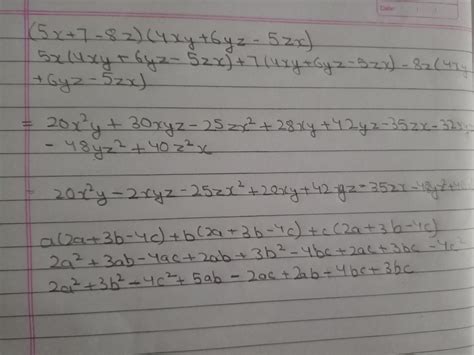 Date:
(5x+7-8z)(4xy+6yz-5zx)
5x(4xy+6yz-5zx)+7(4xy+6yz-5zx)-8z(4xy
+6yz-5zx)
= 20x²y+30xyz-25zx²+28xy+42yz-35zx-32xyz
-48yz²+40z²x
= 20x²y-2xyz-25zx²+28xy+42yz-35zx-48yz²
a(2a+3b-4c)+b(2a+3b-4c)+c(2a+3b-4c)
2a²+3ab-4ac+2ab+3b²-4bc+2ac+3bc-4c²
2a²+3b²-4c²+5ab-2ac+2ab+4bc+3bc